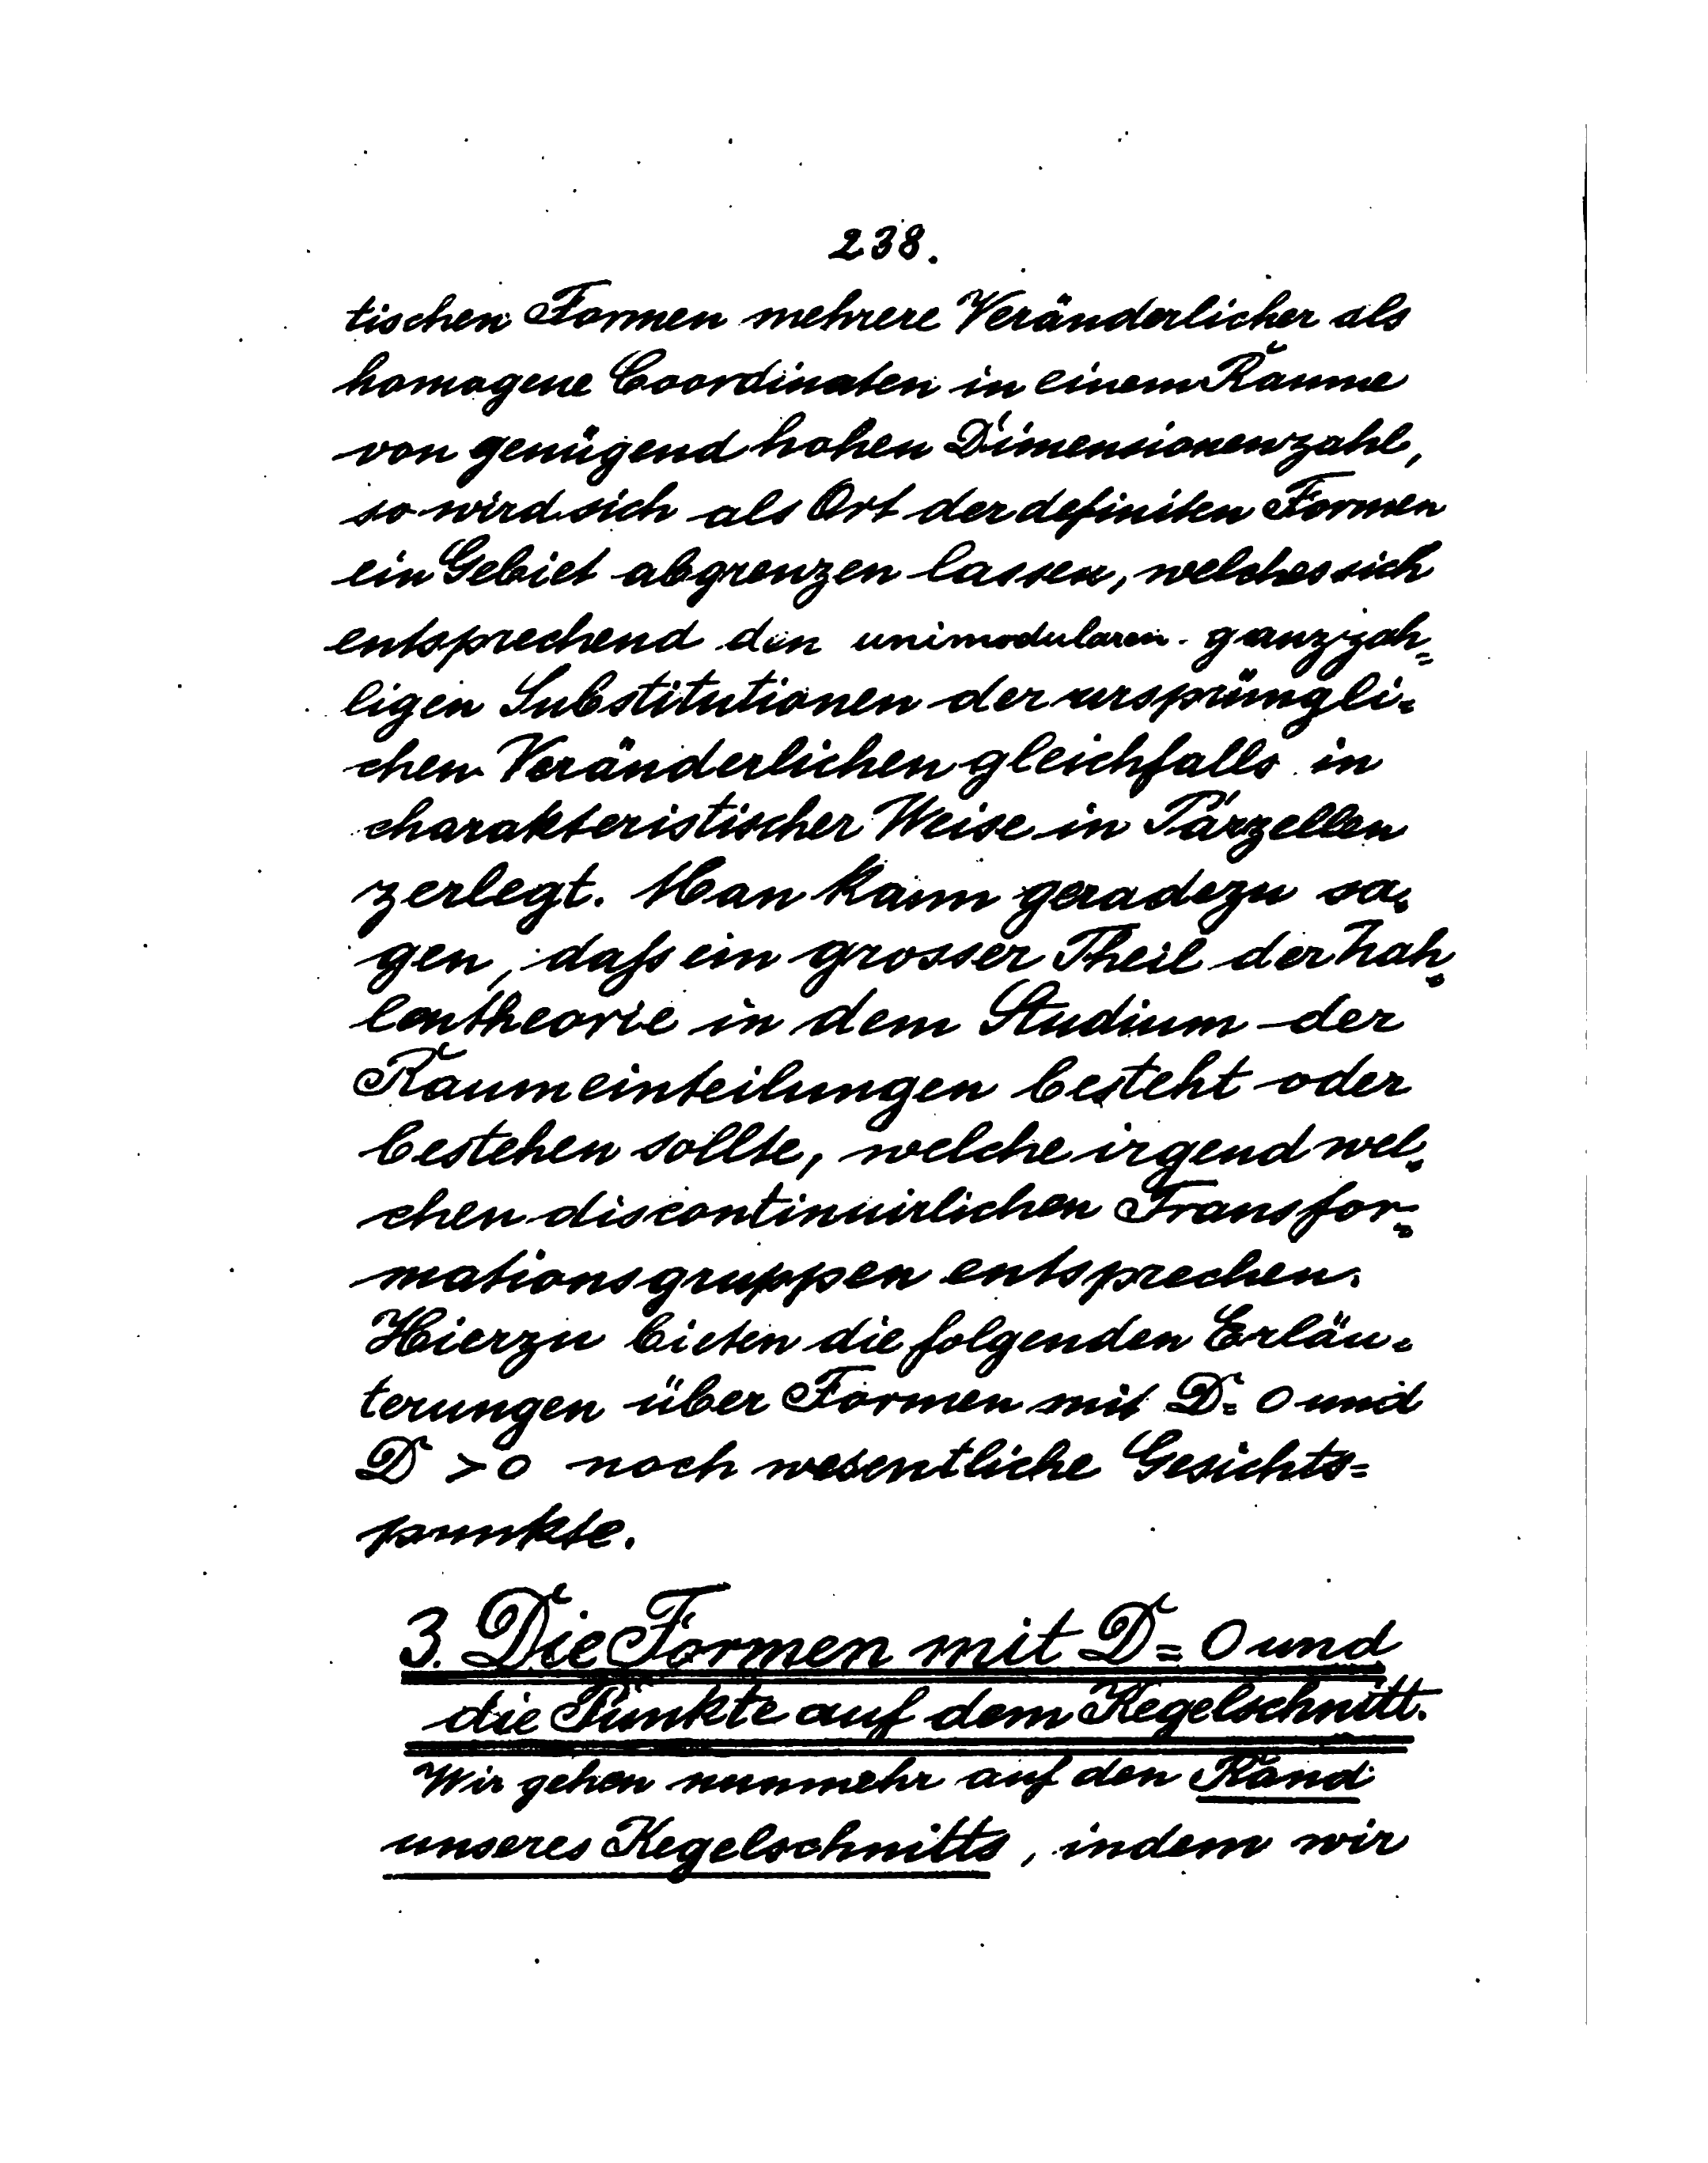 238.
tischen Formen mehrere Veränderlicher als
homogene Coordinaten in einem Raume
von genügend hohen Dimensionenzahl,
so wird sich als Ort der definiten Formen
ein Gebiet abgrenzen lassen, welches sich
entsprechend den unimodularen ganzzah=
ligen Substitutionen der ursprüngli=
chen Veränderlichen gleichfalls in
charakteristischer Weise in Parzellen
zerlegt. Man kann geradezu sa=
gen, daß ein grosser Theil der Zah=
lentheorie in dem Studium der
Raumeinteilungen besteht oder
bestehen sollte, welche irgend wel=
chen discontinuirlichen Transfor=
mationsgruppen entsprechen.
Hierzu bieten die folgenden Erläu=
terungen über Formen mit D = 0 und
D > 0 noch wesentliche Gesichts=
punkte.
3. Die Formen mit D = 0 und
die Punkte auf dem Kegelschnitt.
Wir gehen nunmehr auf den Rand
unseres Kegelschnitts, indem wir